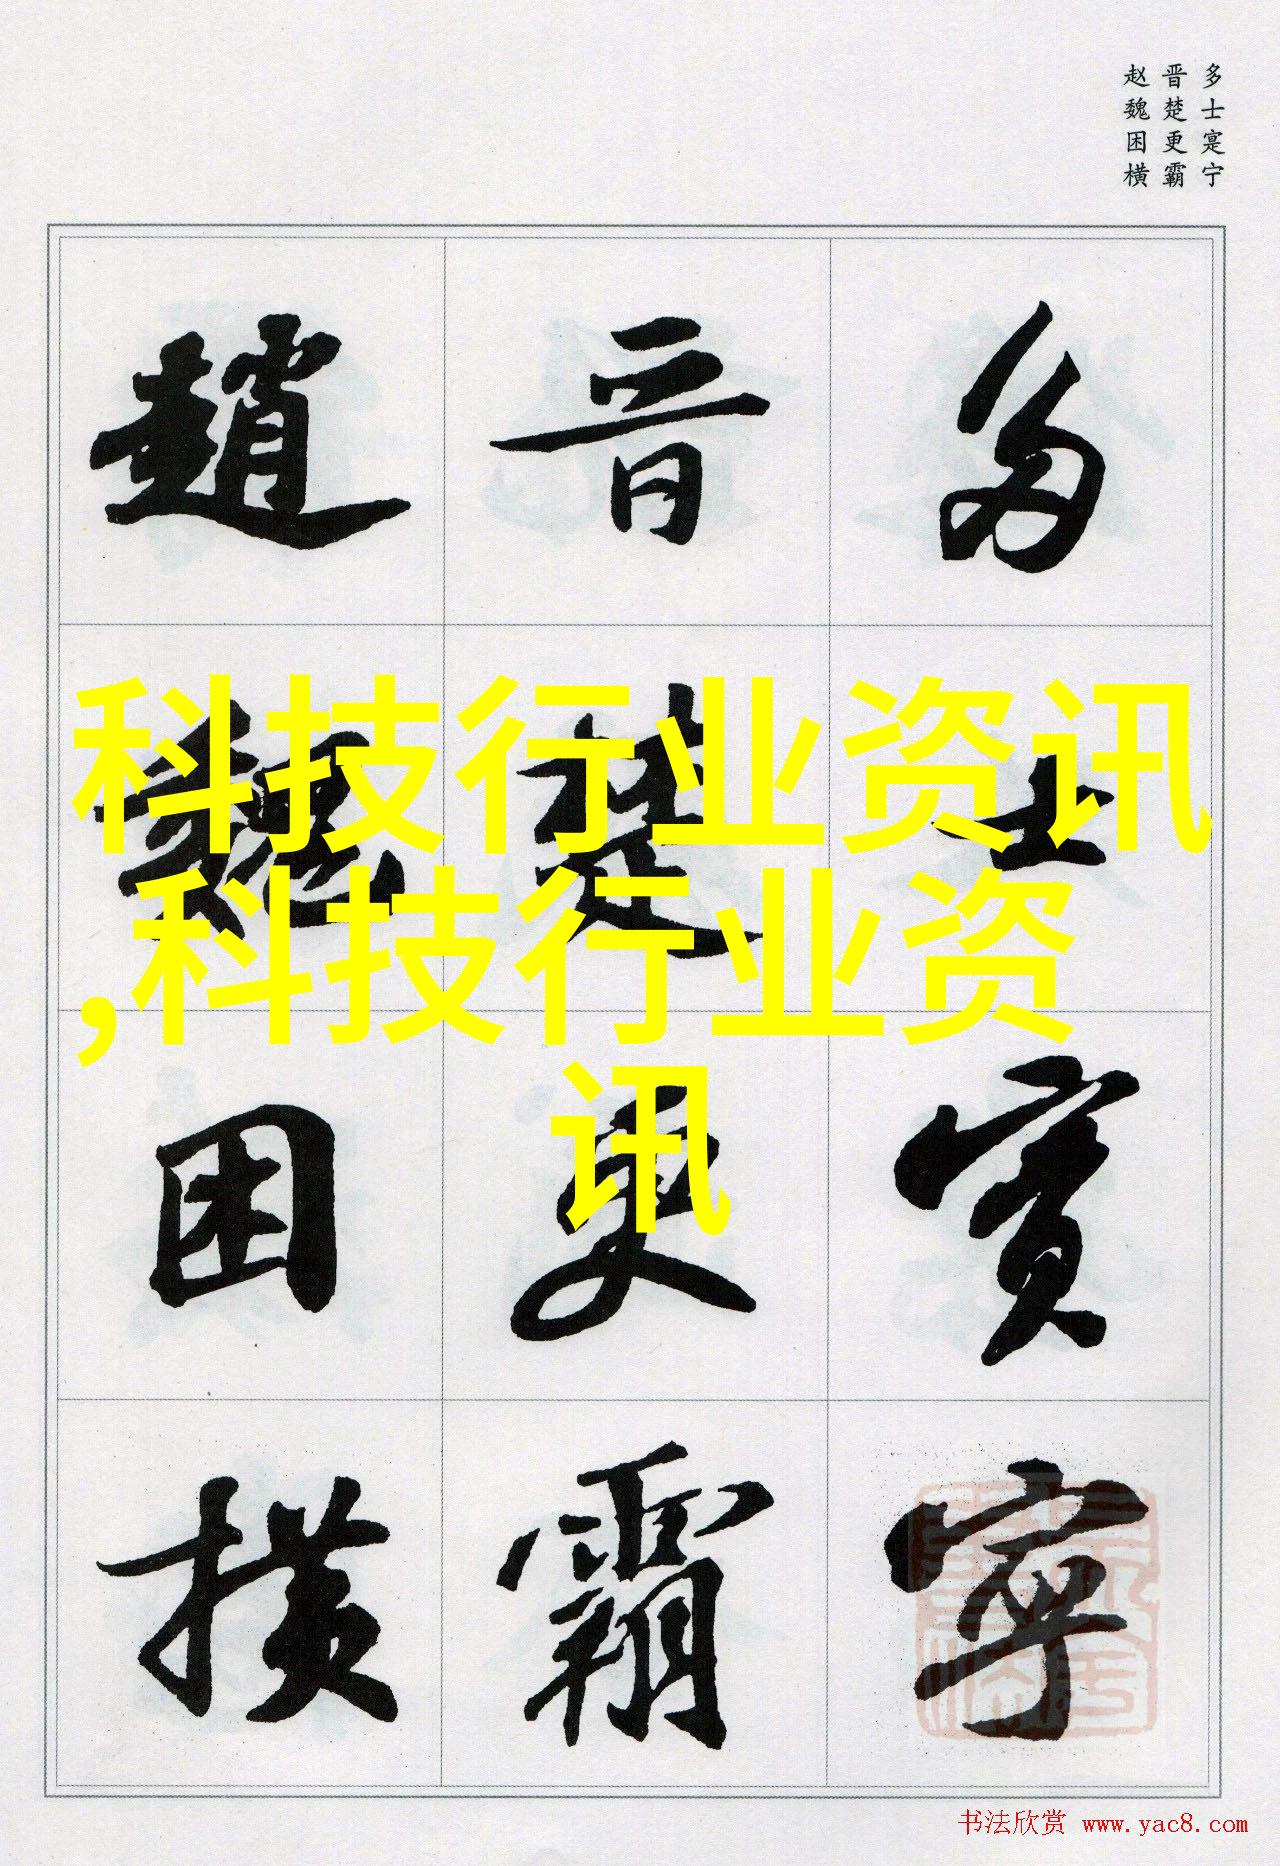 多士寔宁
晋楚更霸
赵魏困横
多士寔寧
晋楚更霸
趙魏困横
科技行业资讯
,科技行业资
讯
书法欣赏 www.yac8.com